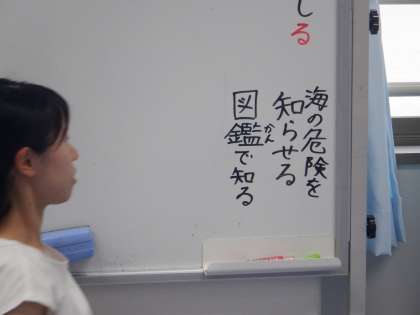 じる
海の危険を
知らせる
図鑑で知る
かん